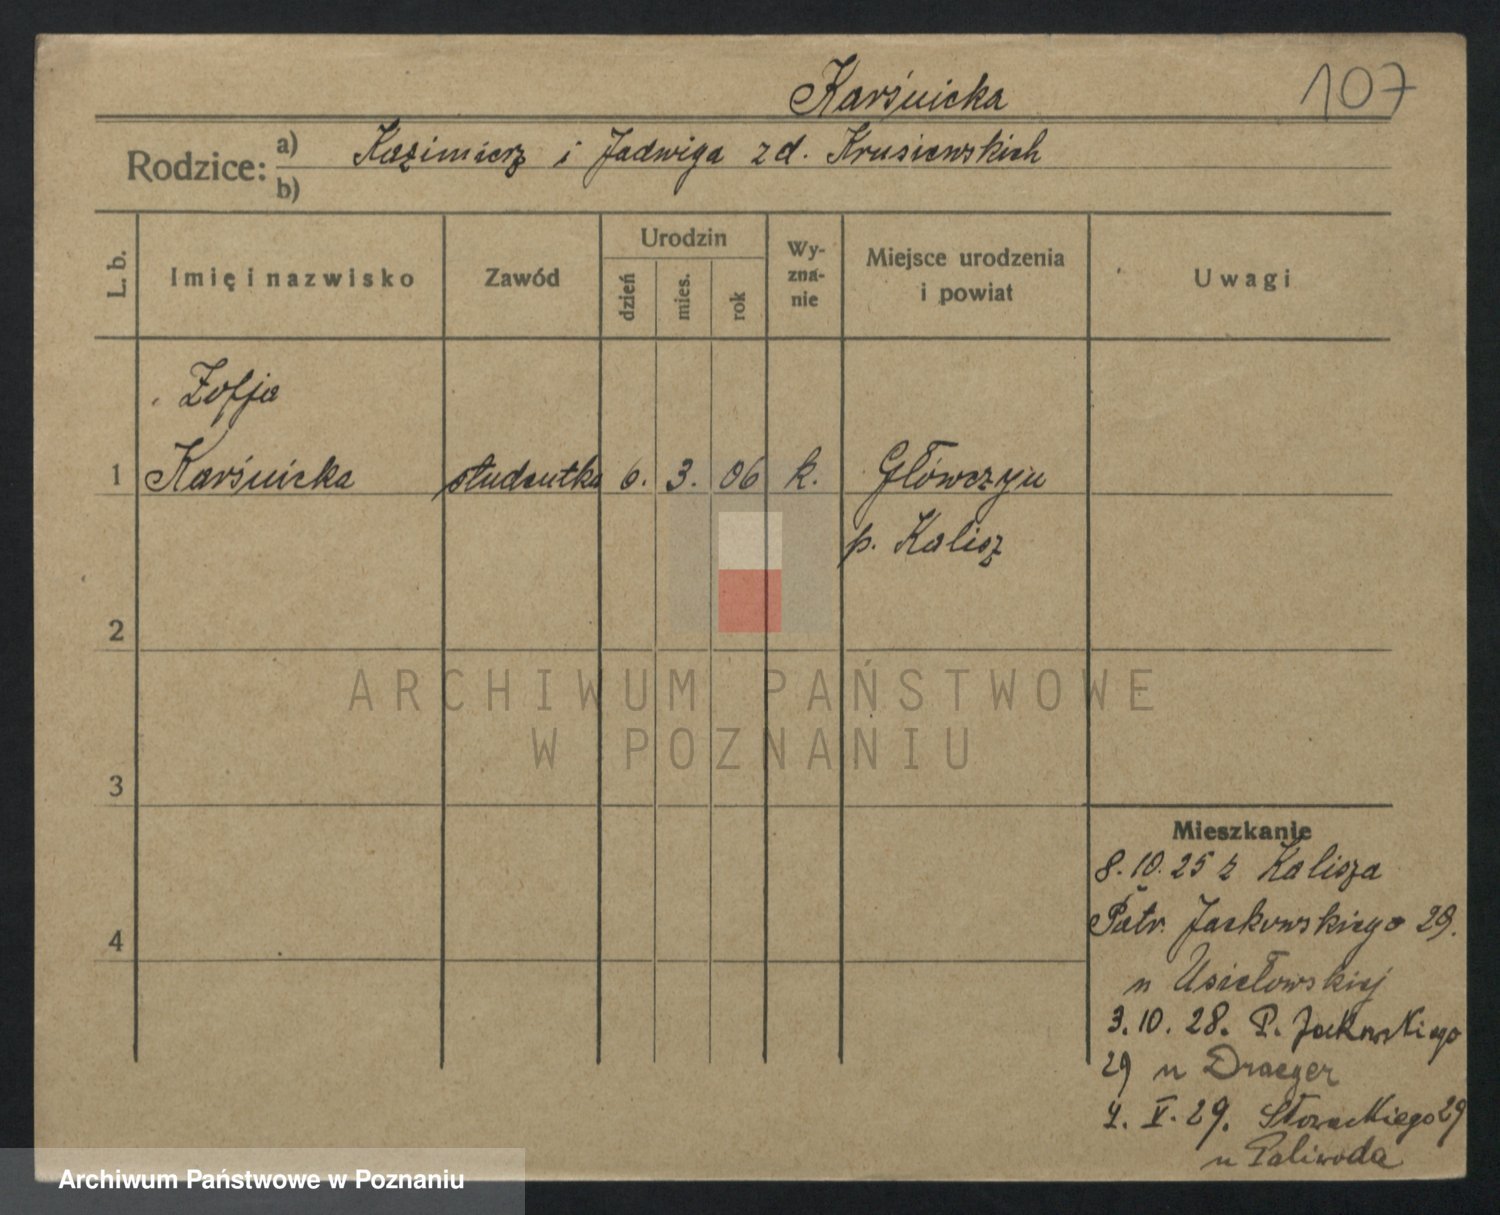 Karśnicka
107
Rodzice: a) Kazimierz i Jadwiga zd. Krusiewskich
b)
L. b.
Imię i nazwisko
Zawód
Urodzin
dzień
mies.
rok
Wy-
zna-
nie
Miejsce urodzenia
i powiat
Uwagi
Zofja
1 Karśnicka studentka 6. 3. 06 k. Główczyn
p. Kalisz
2
3
4
ARCHIWUM PAŃSTWOWE
W POZNANIU
Mieszkanie
8.10.25 z Kalisza
Patr. Jackowskiego 29.
u Usiełowskiej
3.10.28. P. Jackowskiego
29 u Draeger
4. V. 29. Słowackiego 29
u Paliwoda
Archiwum Państwowe w Poznaniu